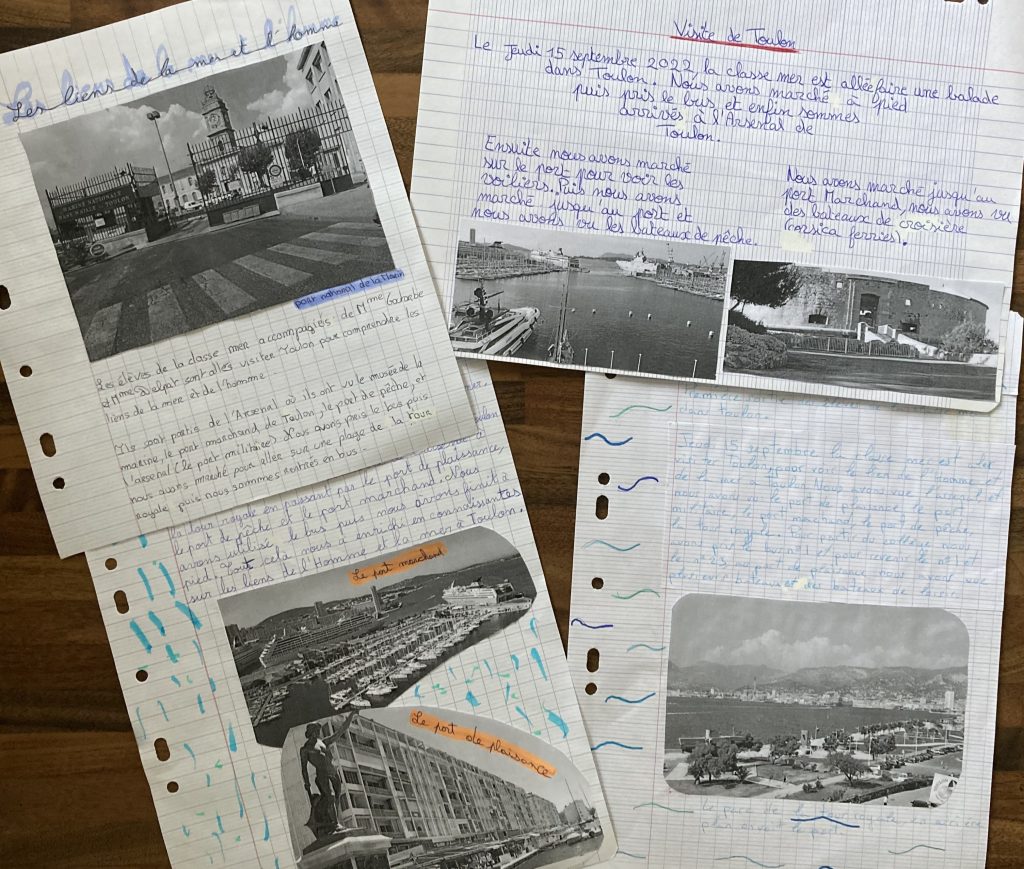 Les liens de la mer et l'homme
MARINE NATIONALE
BASE NAVALE DE TOULON
port national de la Marin
Les élèves de la classe mer accompagnés de Mme Gatarbe
et Mme Delpat sont allés visiter Toulon pour comprendre les
liens de la mer et de l'homme.
Ils sont partis de l'Arsenal où ils ont vu le musée de la
marine, le port marchand de Toulon, le port de pêche, et
l'arsenal (le port militaire). Nous avons pris le bus puis
nous avons marché pour aller sur une plage de la tour
royale puis nous sommes rentrés en bus.
Visite de Toulon
Le Jeudi 15 septembre 2022, la classe mer est allée faire une balade
dans Toulon. Nous avons marché à pied
puis pris le bus, et enfin sommes
arrivés à l'Arsenal de
Toulon.
Ensuite nous avons marché
sur le port pour voir les
voiliers. Puis nous avons
marché jusqu'au port et
nous avons vu les bateaux de pêche.
Nous avons marché jusqu'au
port Marchand, nous avons vu
des bateaux de croisière
(corsica ferries).
mer.
Toulon
la tour royale en passant par le port de plaisance,
le port de pêche et le port marchand. Nous
avons utilisé le bus puis nous avons finit à
pied. Tout cela nous a enrichi en connaissances
sur les liens de l'Homme et la mer à Toulon.
Le port marchand
Le port de plaisance
dans toulon.
Jeudi 15 septembre la classe mer est allé
visiter Toulon, pour voir le lien de l'homme et
de la mer à Toulon. Nous avons vue l'arsenal et
nous avons vu le port de plaisance, le port
militaire, le port marchand, le port de pêche,
la tour royale.
avons pris le
plusieurs bateaux et des bateaux de
Le parc de la tour royale en arrière
plan avant le port